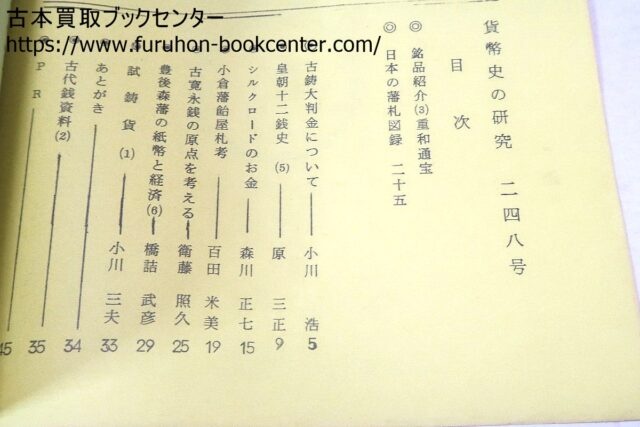 古本買取ブックセンター
https://www.furuhon-bookcenter.com/
貨幣史の研究 二四八号
目次
◎ 銘品紹介(3)重和通宝
◎ 日本の藩札図録 二十五
古鋳大判金について 小川 浩 5
皇朝十二銭史(5) 原 三正 9
シルクロードのお金 森川 正七 15
小倉藩飴屋札考 百田 米美 19
古寛永銭の原点を考える 衛藤 照久 25
豊後森藩の紙幣と経済(6) 橋詰 武彦 29
試鋳貨(1) 小川 三夫 33
あとがき 34
PR 35
古代銭資料(2) 45